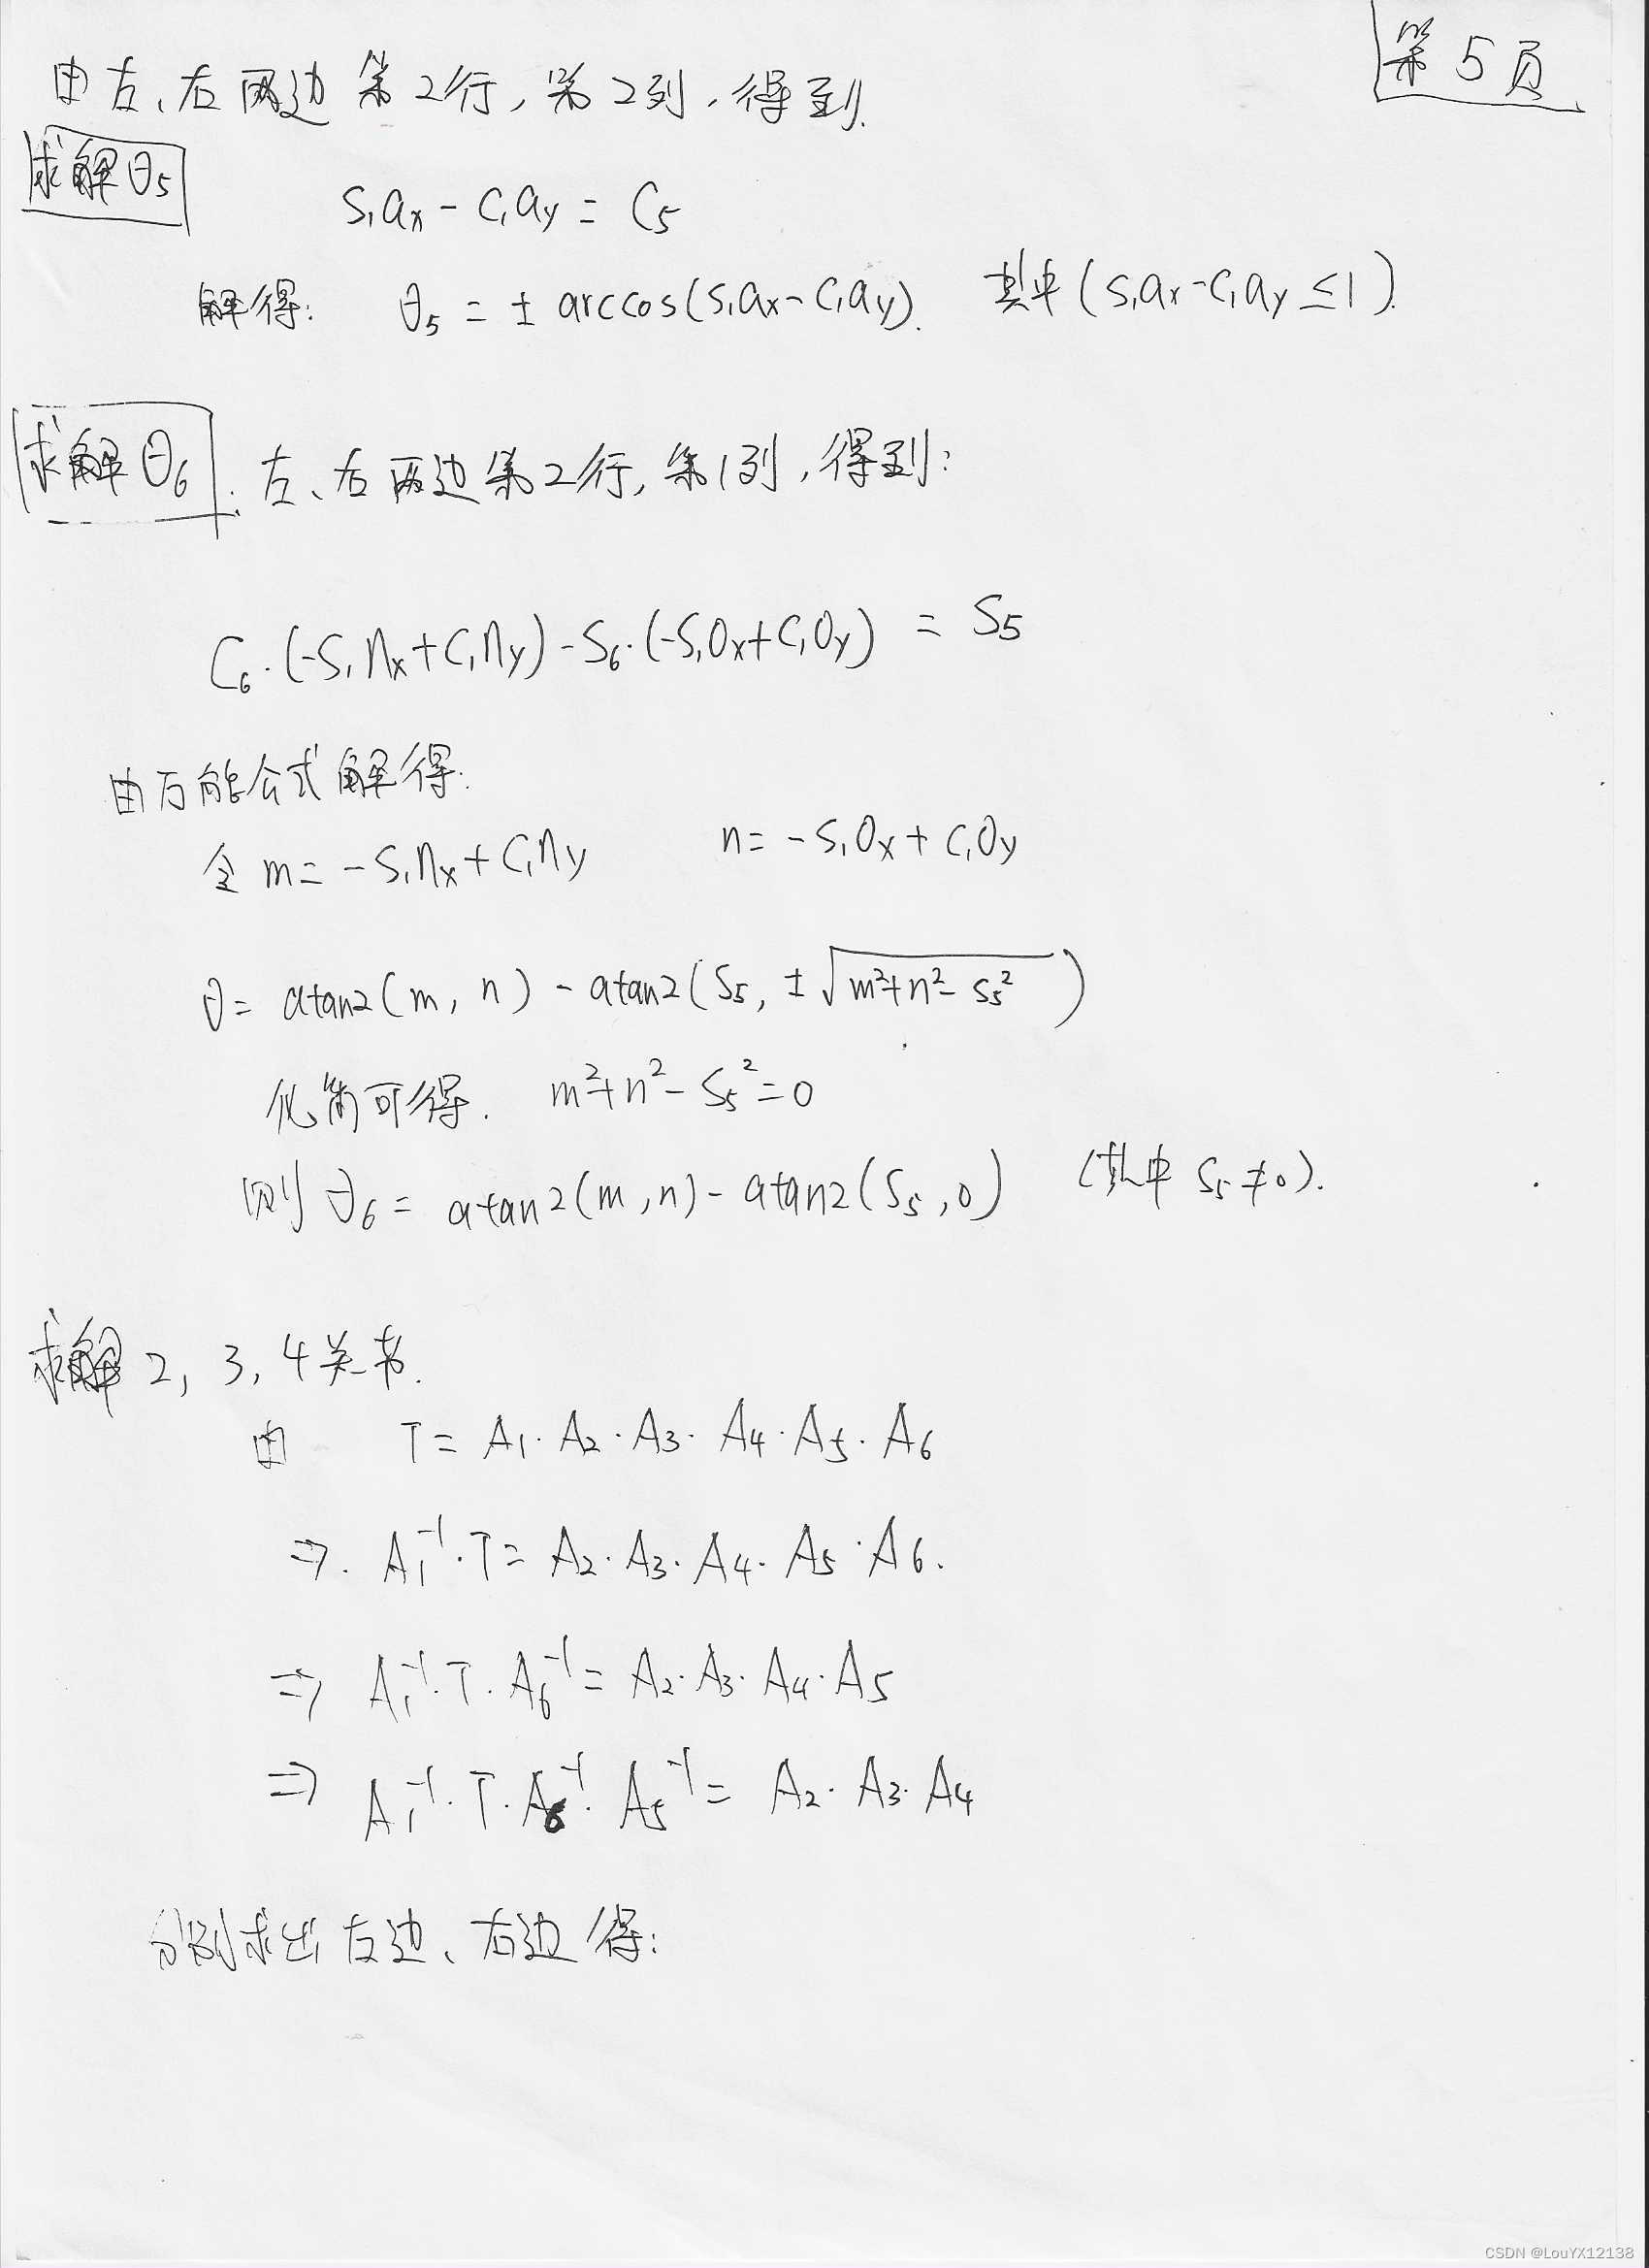 第5页
由左、右两边第2行,第2列,得到.
求解θ₅
S₁aₓ - C₁a_y = C₅
解得: θ₅ = ± arccos(S₁aₓ - C₁a_y). 其中(S₁aₓ - C₁a_y ≤ 1).
求解θ₆: 左、右两边第2行,第1列,得到:
C₆·(-S₁nₓ + C₁n_y) - S₆·(-S₁Oₓ + C₁O_y) = S₅
由万能公式解得:
令 m = -S₁nₓ + C₁n_y n = -S₁Oₓ + C₁O_y
θ = atan2(m, n) - atan2(S₅, ±√(m²+n²-S₅²))
化简可得. m²+n²-S₅²=0
则 θ₆ = atan2(m, n) - atan2(S₅, 0) (其中 S₅ ≠ 0).
求解 2, 3, 4关节.
由 T = A₁·A₂·A₃·A₄·A₅·A₆
⇒. A₁⁻¹·T = A₂·A₃·A₄·A₅·A₆.
⇒ A₁⁻¹·T·A₆⁻¹ = A₂·A₃·A₄·A₅
⇒ A₁⁻¹·T·A₆⁻¹·A₅⁻¹ = A₂·A₃·A₄
分别求出左边、右边得:
CSDN @LouYX12138